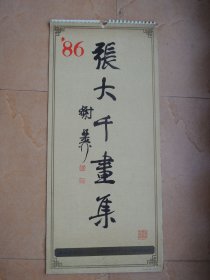 '86
張大千畫集
謝